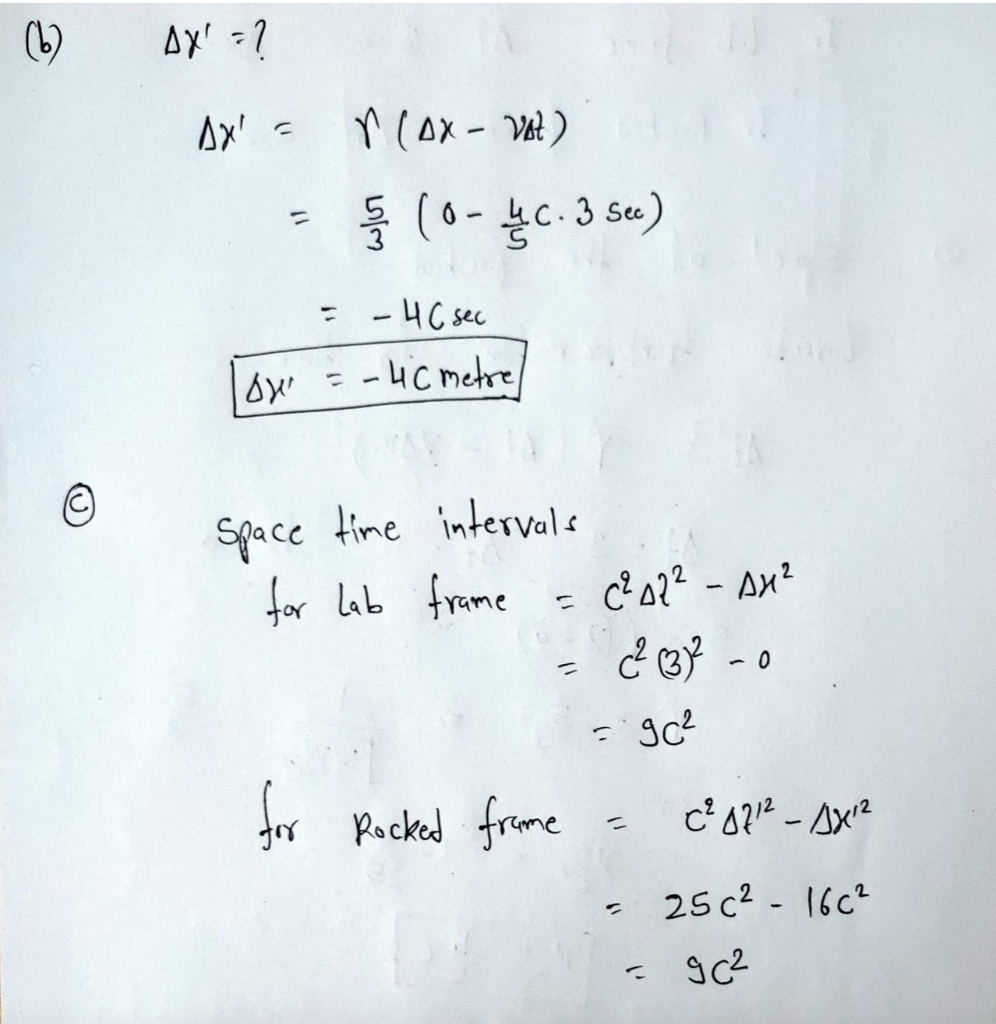 (b) Δx' = ?
Δx' = γ (Δx - vΔt)
= 5/3 (0 - 4/5 c . 3 sec)
= - 4C sec
Δx' = - 4C metre
(c)
Space time intervals
for Lab frame = c² Δt² - Δx²
= c² (3)² - 0
= 9c²
for Rocked frame = c² Δt'² - Δx'²
= 25 c² - 16c²
= 9c²